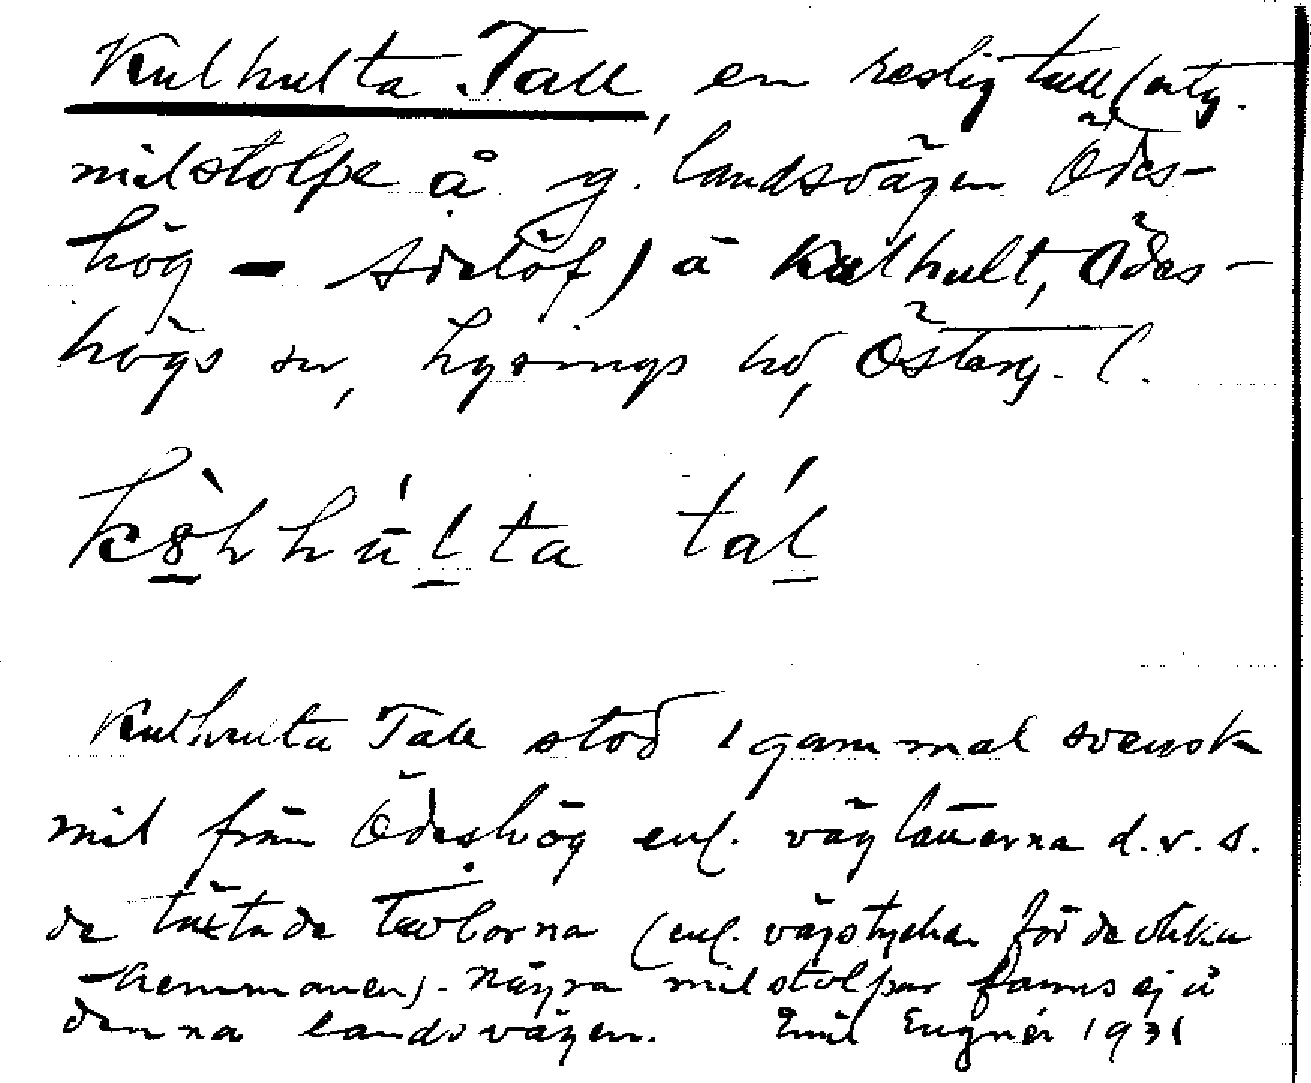 Kulhulta Tall, en reslig tall (enty.
milstolpe å g. landsvägen Ödes-
hög - Adelöf) å Kulhult, Ödes-
högs sn, Lysings hd, Österg. l.
hulta tal
Kulhulta Tall stod 1 gammal svensk
mil från Ödeshög enl. väg erna d.v.s.
de Tavlorna (enl. vägstycken för de olika
hemmanen). Några milstolpar fanns ej å
denna landsvägen. Emil Eugnér 1931